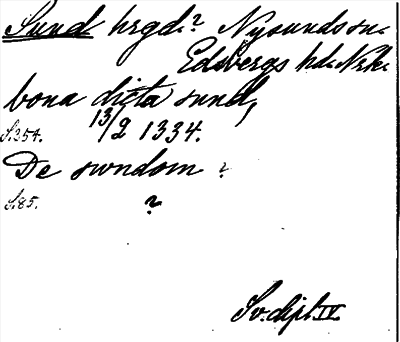 Sund hrgd.? Nysunds sn.
Edsbergs hd. Nrke.
bona dicta sund,
S.254. 13/2 1334.
De swndom ?
S.85. ?
Sv. dipl. IV